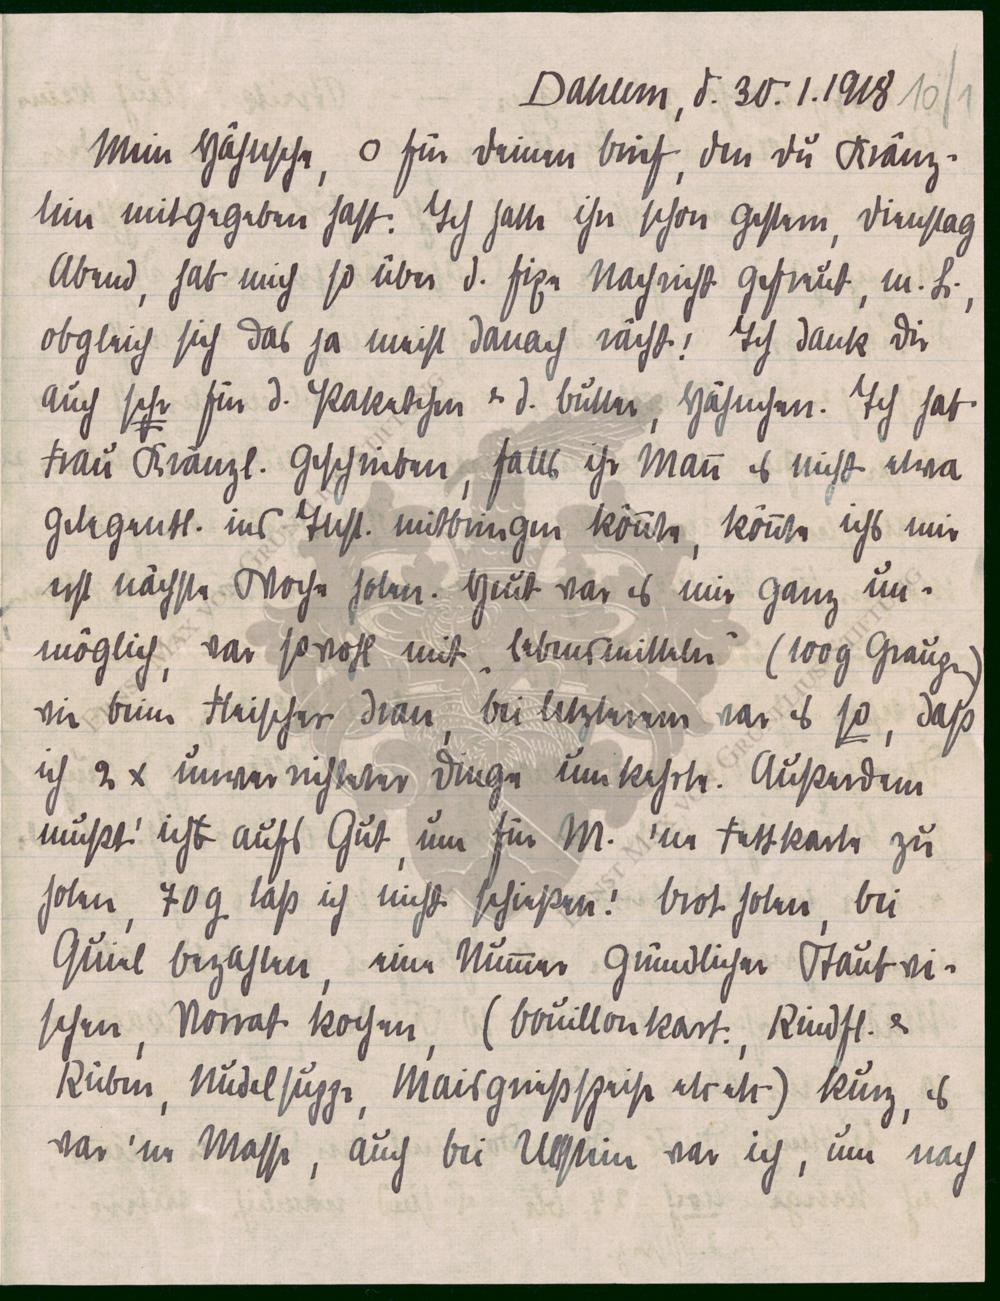 Dahlem, d. 30.1.1918 10/1
Mein Hähnsche, O für deinen brief, den du Kränz-
lin mitgegeben hast. Ich hatte ihn schon gestern, dienstag
Abend, hab mich so über d. fixe Nachricht gefreut, m. L.,
obgleich sich das ja meist danach rächt! Ich dank dir
auch sehr für d. Paketchen & d. butter, Hähnchen. Ich hab
Frau Kränzl. geschrieben, falls ihr Mañ es nicht etwa
gelegentl. ins Inst. mitbringen köñte, köñte ichs mir
erst nächste Woche holen. Heut war es mir ganz un-
möglich, war sowohl mit „lebensmitteln" (100g Graupe)
wie beim Fleischer dran, bei letzterem war es so, daß
ich 2 x unverrichteter dinge umkehrte. Außerdem
mußt' ich aufs Gut, um für M. 'ne Fettkarte zu
holen, 70g laß ich nicht schießen! brot holen, bei
Quiel bezahlen, eine Num̄er gründlicher Staubwi-
schen, Vorrat kochen, (bouillonkart., Rindfl. &
Rüben, Nudelsuppe, Maisgrießspeise etc etc) kurz, es
war 'ne Masse, auch bei Ullstein war ich, um nach
ERNST MAX VON GRUNELIUS-STIFTUNG
ERNST MAX VON GRUNELIUS-STIFTUNG